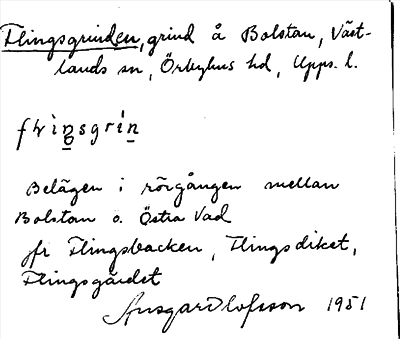 Flingsgrinden, grind å Bolstan, Väst-
lands sn, Örbyhus hd, Upps. l.
flʲiŋsgrin
Belägen i rörgången mellan
Bolstan o. Östra Vad
jfr Flingsbacken, Flingsdiket,
Flingsgärdet
Ansgar Olofsson 1951